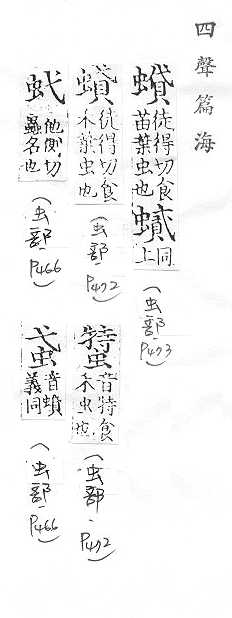 四聲篇海
徒得切食苗葉虫也
同上
(虫部.P473)
蟘 徒得切食禾葉虫也
(虫部.P472)
音特食禾虫也
(虫部.P472)
他則切蟲名也
(虫部.P466)
音蟘義同
(虫部.P466)